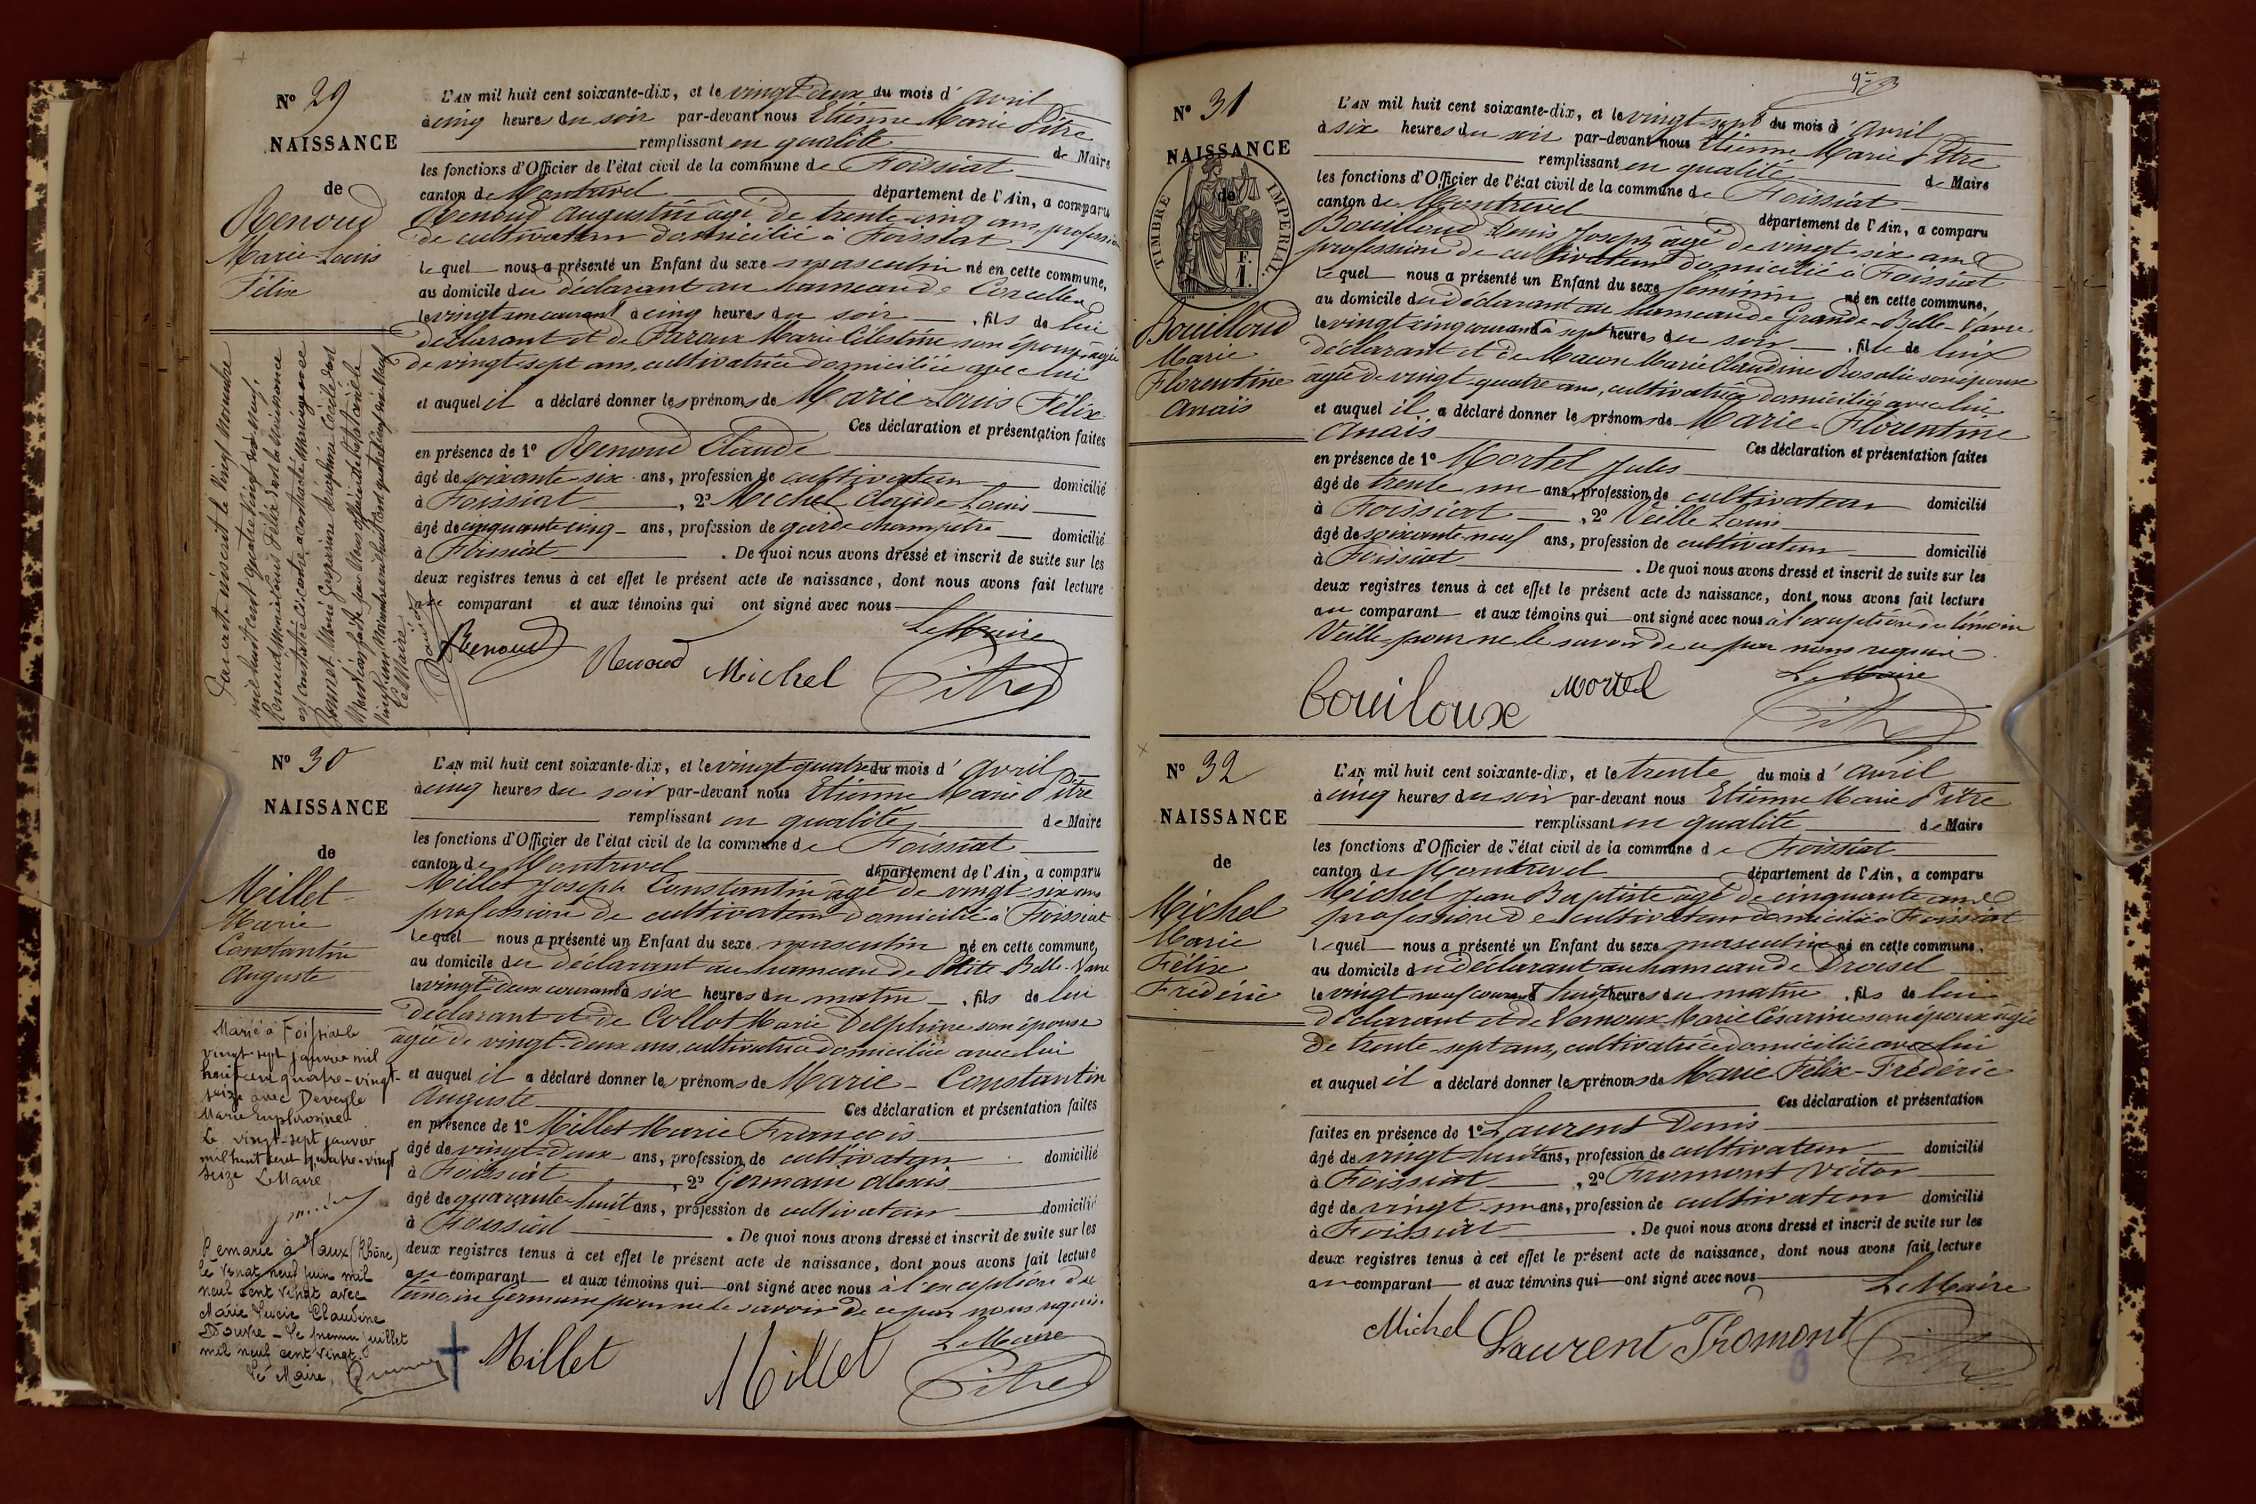 Nº 29
NAISSANCE
de
Renoud
Marie Louis
Félix
L'AN mil huit cent soixante-dix, et le vingt deux du mois d'avril
à cinq heures du soir par-devant nous Etienne Marie Pitre
remplissant en qualité de Maire
les fonctions d'Officier de l'état civil de la commune de Foissiat
canton de Montrevel département de l'Ain, a comparu
Renoud Augustin âgé de trente-cinq ans, profession
de cultivateur domicilié à Foissiat
lequel nous a présenté un Enfant du sexe masculin né en cette commune,
au domicile du déclarant au hameau de Corcelles
le vingt un courant à cinq heures du soir, fils de lui
déclarant et de Marie Célestine son épouse âgée
de vingt sept ans, cultivatrice domiciliée avec lui
et auquel il a déclaré donner les prénoms de Marie Louis Félix
Ces déclaration et présentation faites
en présence de 1º Renoud Claude
âgé de soixante six ans, profession de cultivateur domicilié
à Foissiat, 2º Michel Claude Louis
âgé de cinquante cinq ans, profession de garde champêtre domicilié
à Foissiat. De quoi nous avons dressé et inscrit de suite sur les
deux registres tenus à cet effet le présent acte de naissance, dont nous avons fait lecture
au comparant et aux témoins qui ont signé avec nous
Le Maire
Renoud Renoud Michel Pitre
Nº 30
NAISSANCE
de
Millet
Marie
Constantin
Auguste
Marié à Foissiat le
vingt-sept janvier mil
huit cent quatre-vingt-
seize avec Deveyle
Marie Euphrosine
Le vingt-sept janvier
mil huit cent quatre-vingt
seize Le Maire
Remarié à Vaux (Rhône)
le vingt neuf juin mil
neuf cent vingt avec
Marie Claudine
Le premier juillet
mil neuf cent vingt.
Le Maire,
L'AN mil huit cent soixante-dix, et le vingt-quatre du mois d'avril
à cinq heures du soir par-devant nous Etienne Marie Pitre
remplissant en qualité de Maire
les fonctions d'Officier de l'état civil de la commune de Foissiat
canton de Montrevel département de l'Ain, a comparu
Millet Joseph Constantin âgé de vingt six ans
profession de cultivateur domicilié à Foissiat
lequel nous a présenté un Enfant du sexe masculin né en cette commune,
au domicile du déclarant au hameau de Petite Belle-Vavre
le vingt deux courant à six heures du matin, fils de lui
déclarant et de Collot Marie Delphine son épouse
âgée de vingt-deux ans, cultivatrice domiciliée avec lui
et auquel il a déclaré donner les prénoms de Marie-Constantin
Auguste Ces déclaration et présentation faites
en présence de 1º Millet Marie François
âgé de vingt-deux ans, profession de cultivateur domicilié
à Foissiat, 2º Germain Alexis
âgé de quarante-huit ans, profession de cultivateur domicilié
à Foissiat. De quoi nous avons dressé et inscrit de suite sur les
deux registres tenus à cet effet le présent acte de naissance, dont nous avons fait lecture
au comparant et aux témoins qui ont signé avec nous à l'exception du
témoin Germain pour ne le savoir de ce par nous requis.
Le Maire
Millet Millet Pitre
Nº 31
NAISSANCE
de
TIMBRE IMPERIAL
F.
1.
Bouilloud
Marie
Florentine
Anaïs
L'AN mil huit cent soixante-dix, et le vingt-sept du mois d'avril
à six heures du soir par-devant nous Etienne Marie Pitre
remplissant en qualité de Maire
les fonctions d'Officier de l'état civil de la commune de Foissiat
canton de Montrevel département de l'Ain, a comparu
Bouilloud Denis Joseph âgé de vingt-six ans
profession de cultivateur domicilié à Foissiat
lequel nous a présenté un Enfant du sexe féminin né en cette commune,
au domicile du déclarant au hameau de Grande-Belle-Vavre
le vingt cinq courant à sept heures du soir, fille de lui
déclarant et de Macon Marie Claudine Rosalie son épouse
âgée de vingt-quatre ans, cultivatrice domiciliée avec lui
et auquel il a déclaré donner les prénoms de Marie-Florentine
Anaïs Ces déclaration et présentation faites
en présence de 1º Mortel Jules
âgé de trente un ans, profession de cultivateur domicilié
à Foissiat, 2º Veille Louis
âgé de soixante-neuf ans, profession de cultivateur domicilié
à Foissiat. De quoi nous avons dressé et inscrit de suite sur les
deux registres tenus à cet effet le présent acte de naissance, dont nous avons fait lecture
au comparant et aux témoins qui ont signé avec nous à l'exception du témoin
Veille pour ne le savoir de ce par nous requis
Le Maire
bouiloux Mortel Pitre
Nº 32
NAISSANCE
de
Michel
Marie
Félix
Frédéric
L'AN mil huit cent soixante-dix, et le trente du mois d'avril
à cinq heures du soir par-devant nous Etienne Marie Pitre
remplissant en qualité de Maire
les fonctions d'Officier de l'état civil de la commune de Foissiat
canton de Montrevel département de l'Ain, a comparu
Michel Jean Baptiste âgé de cinquante ans
profession de cultivateur domicilié à Foissiat
lequel nous a présenté un Enfant du sexe masculin né en cette commune,
au domicile du déclarant au hameau de Droisel
le vingt neuf courant à huit heures du matin, fils de lui
déclarant et de Vernoux Marie Césarine son épouse âgée
de trente-sept ans, cultivatrice domiciliée avec lui
et auquel il a déclaré donner les prénoms de Marie Félix-Frédéric
Ces déclaration et présentation
faites en présence de 1º Laurent Denis
âgé de vingt huit ans, profession de cultivateur domicilié
à Foissiat, 2º Fromont Victor
âgé de vingt-un ans, profession de cultivateur domicilié
à Foissiat. De quoi nous avons dressé et inscrit de suite sur les
deux registres tenus à cet effet le présent acte de naissance, dont nous avons fait lecture
au comparant et aux témoins qui ont signé avec nous
Le Maire
Michel Laurent Fromont Pitre